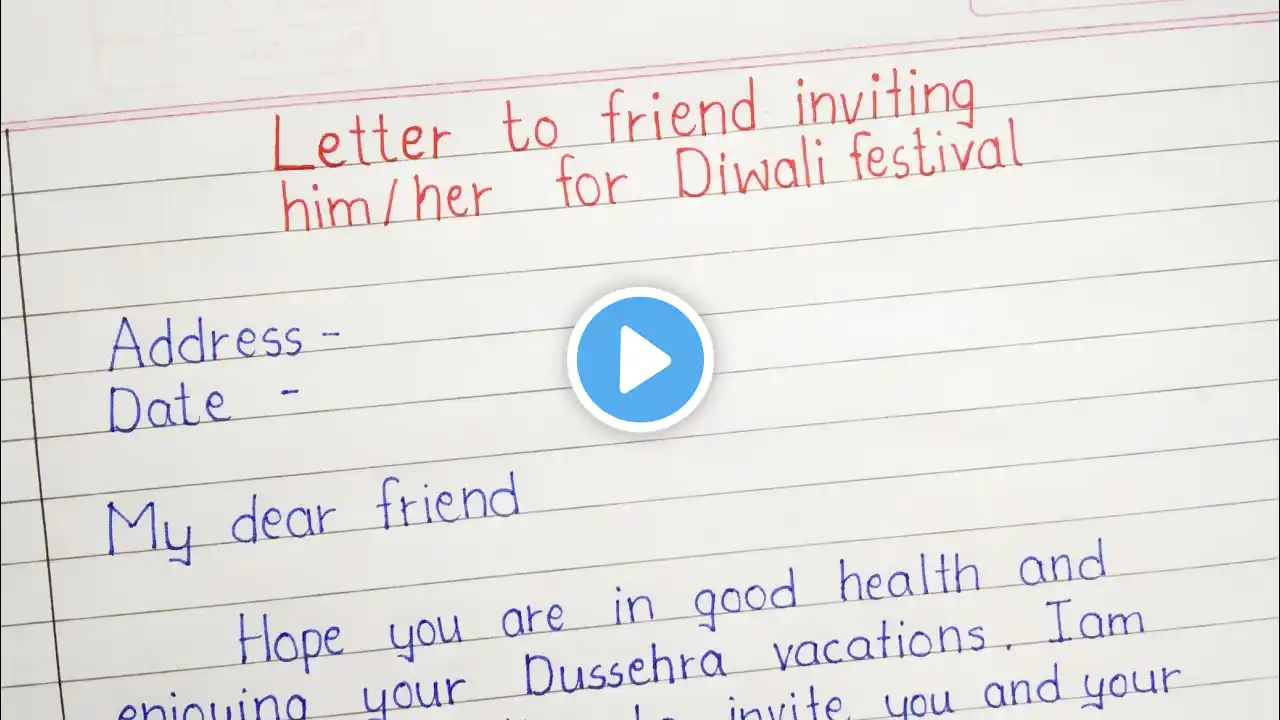 Letter to friend inviting
him/her for Diwali festival
Address -
Date -
My dear friend
Hope you are in good health and
enjoying your Dussehra vacations. I am
invite you and your